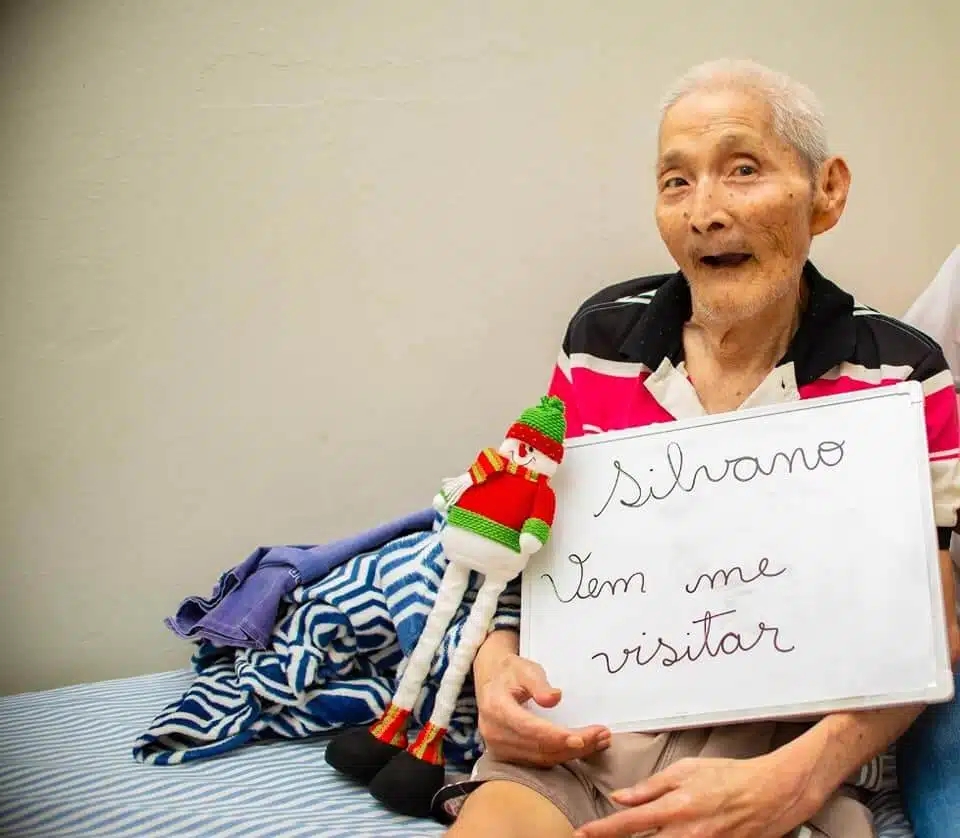 Silvano
Vem me
visitar